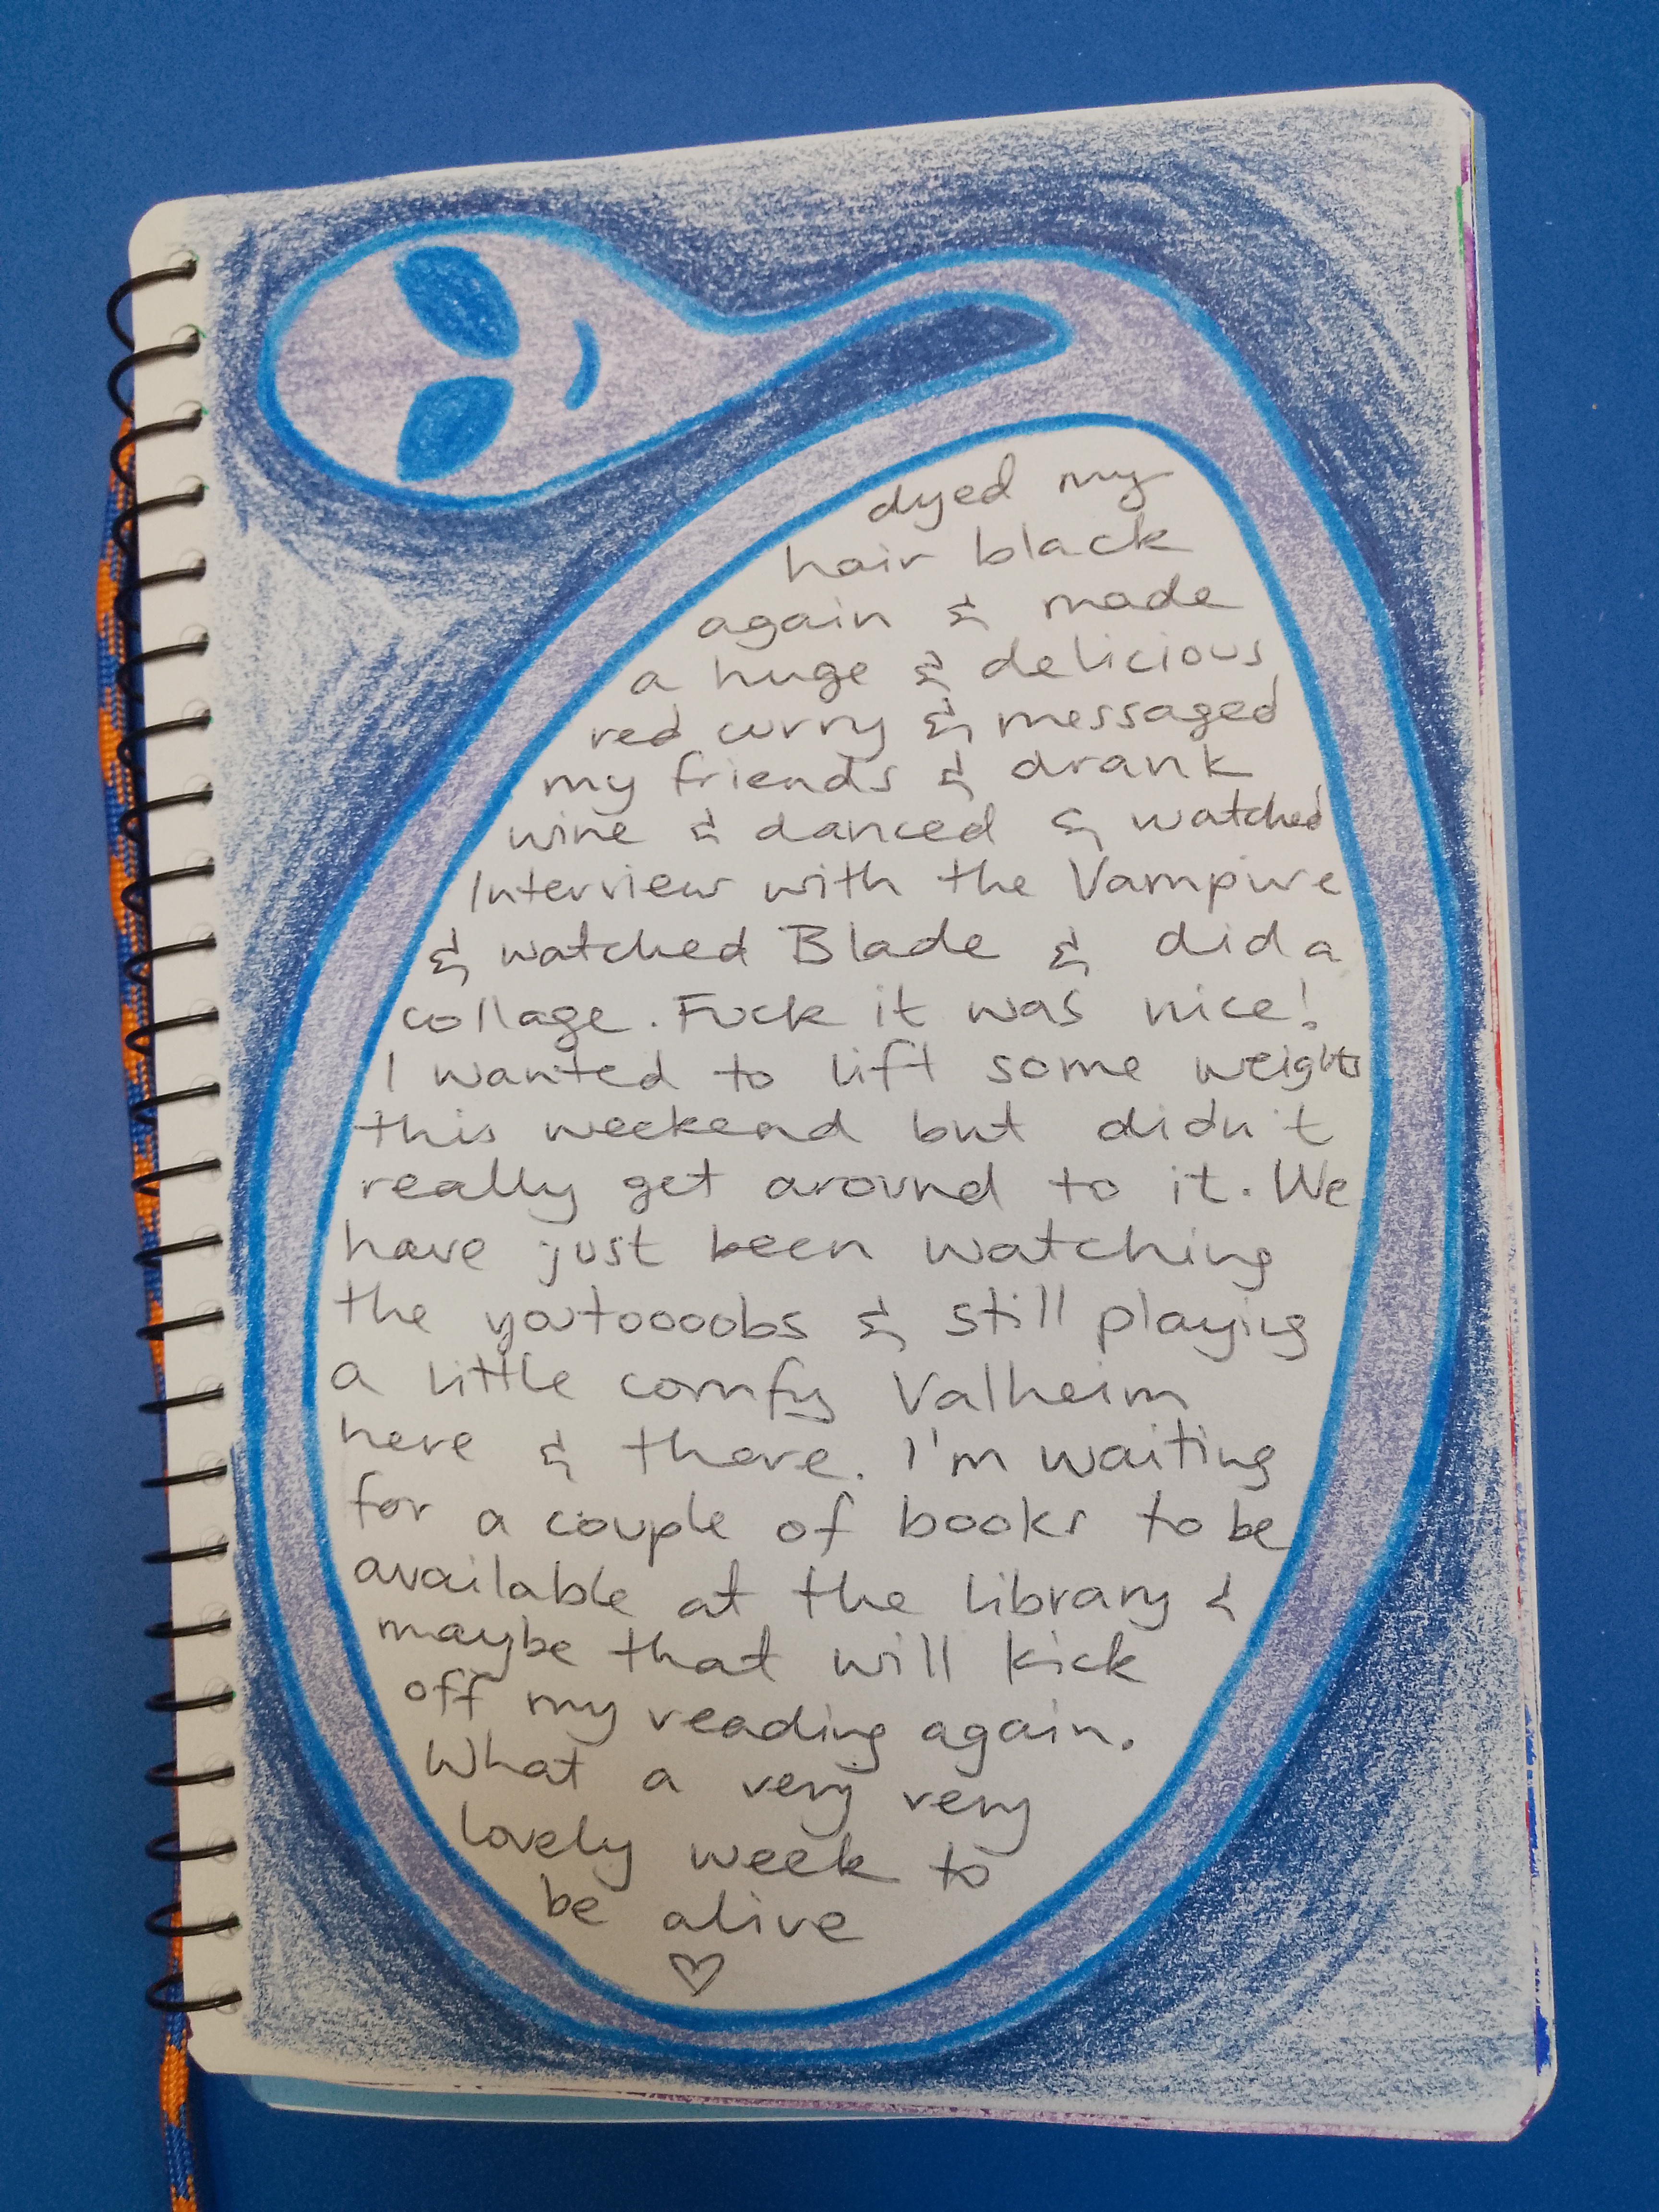 dyed my
hair black
again & made
a huge & delicious
red curry & messaged
my friends & drank
wine & danced & watched
Interview with the Vampire
& watched Blade & did a
collage. Fuck it was nice!
I wanted to lift some weights
this weekend but didn't
really get around to it. We
have just been watching
the youtoooobs & still playing
a little comfy Valheim
here & there. I'm waiting
for a couple of books to be
available at the library &
maybe that will kick
off my reading again.
What a very very
lovely week to
be alive
♡